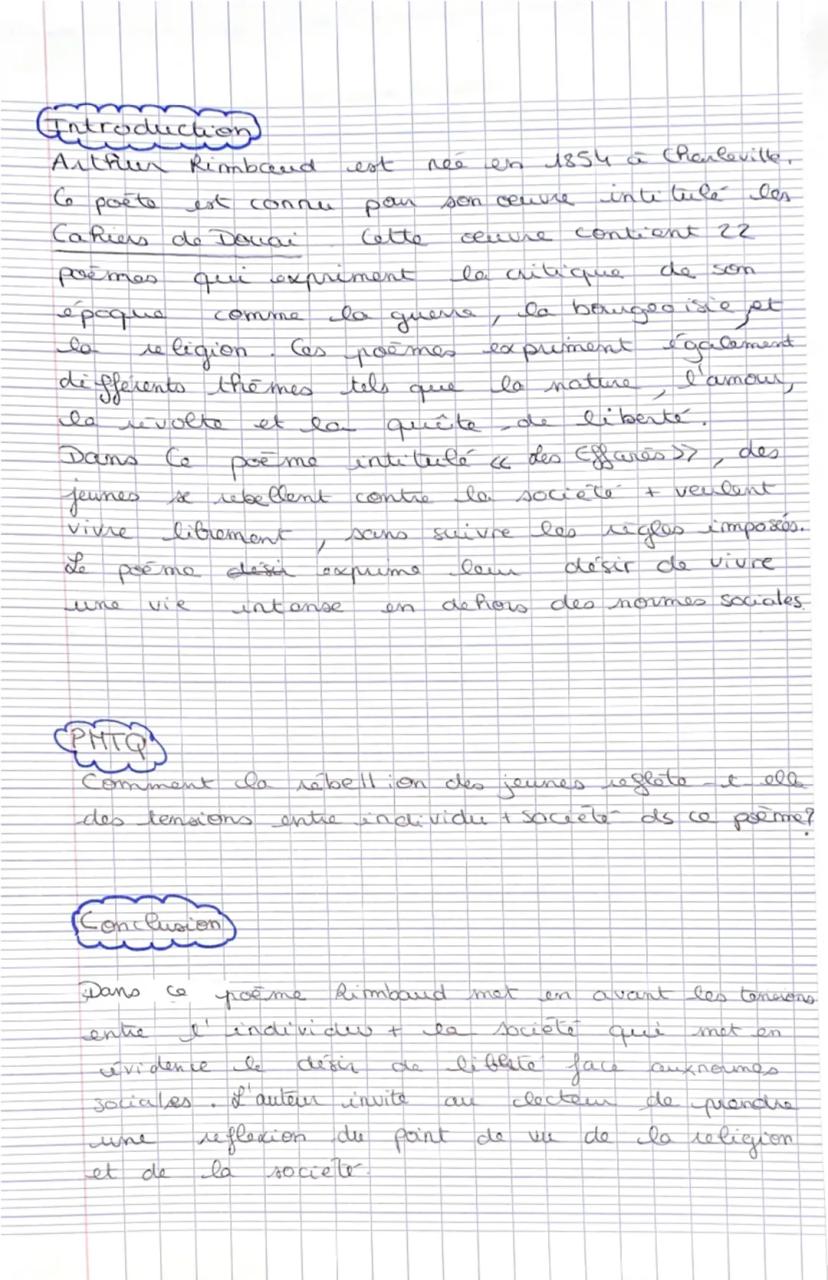 Introduction
Arthur Rimbaud est née en 1854 à Charleville.
Ce poète est connu par son œuvre intitulé les
Cahiers de Douai Cette œuvre contient 22
poèmes qui expriment la critique de son
époque comme la guerre, la bourgeoisie, et
la religion. Ces poèmes expriment également
différents thèmes tels que la nature, l'amour,
la révolte et la quête de liberté.
Dans ce poème intitulé « Les Effarés », des
jeunes se rebellent contre la société + veulent
vivre librement, sans suivre les règles imposés.
Le poème exprime leur désir de vivre
une vie intense en dehors des normes sociales.
PMTQ
Comment la rébellion des jeunes reflete-t elle
des tensions entre individu + société ds ce poème?
Conclusion
Dans ce poème Rimbaud met en avant les tensions
entre l'individu + la société qui met en
évidence le désir de liberté face aux normes
sociales. L'auteur invite au lecteur de prendre
une reflexion du point de vu de la religion
et de la société.